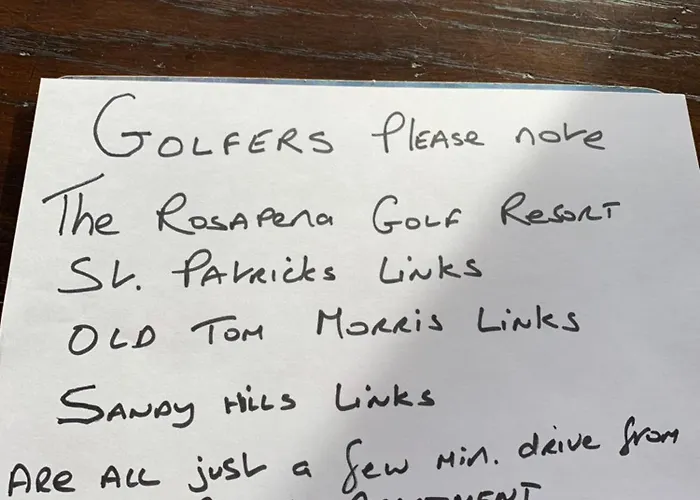 GOLFERS Please note
The Rosapena Golf Resort
St. Patricks Links
OLD TOM MORRIS LINKS
SANDY HILLS LINKS
ARE ALL just a few Min. drive from